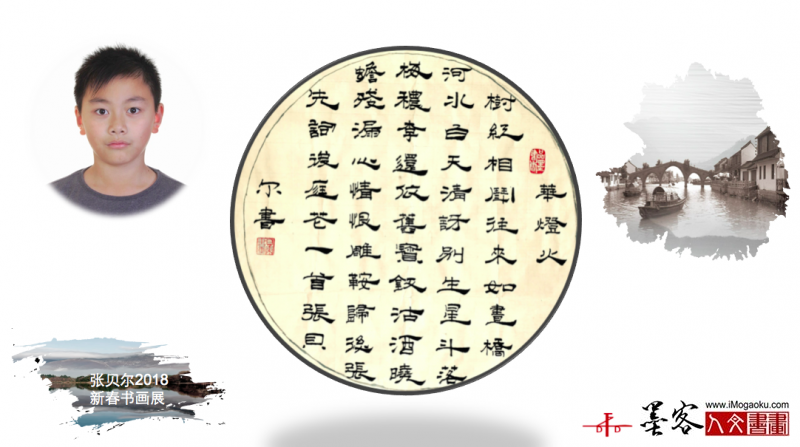 華燈火
樹紅相鬬往來如晝橋
河水白天清訝別生星斗落
梅穠李還依舊寶釵沽酒曉
蟾殘漏心情恨雕鞍歸後張
先詞後庭花一首張貝
尔書
张贝尔2018
新春书画展
www.iMogaoku.com
墨客
人文書畫